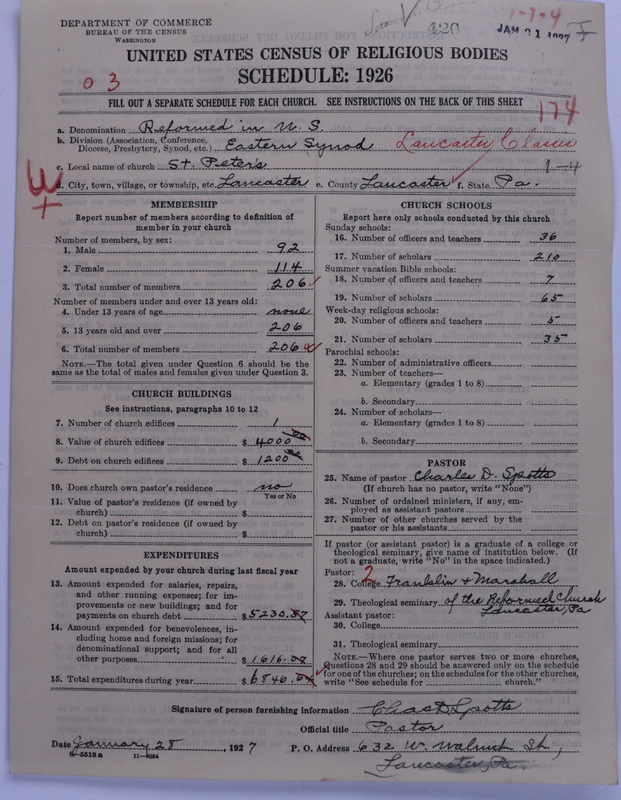 DEPARTMENT OF COMMERCE
BUREAU OF THE CENSUS
WASHINGTON
420
1-7-4
UNITED STATES CENSUS OF RELIGIOUS BODIES
SCHEDULE: 1926
03
FILL OUT A SEPARATE SCHEDULE FOR EACH CHURCH. SEE INSTRUCTIONS ON THE BACK OF THIS SHEET
174
a. Denomination Reformed in U. S.
b. Division (Association, Conference, Diocese, Presbytery, Synod, etc.) Eastern Synod Lancaster Classis
c. Local name of church St. Peter's 1-4
d. City, town, village, or township, etc. Lancaster e. County Lancaster f. State Pa.
MEMBERSHIP
Report number of members according to definition of
member in your church
Number of members, by sex:
1. Male 92
2. Female 114
3. Total number of members 206
Number of members under and over 13 years old:
4. Under 13 years of age none
5. 13 years old and over 206
6. Total number of members 206
NOTE.—The total given under Question 6 should be the
same as the total of males and females given under Question 3.
CHURCH BUILDINGS
See instructions, paragraphs 10 to 12
7. Number of church edifices 1
8. Value of church edifices $ 4000 00
9. Debt on church edifices $ 1200 00
10. Does church own pastor's residence no
Yes or No
11. Value of pastor's residence (if owned by
church) $
12. Debt on pastor's residence (if owned by
church) $
EXPENDITURES
Amount expended by your church during last fiscal year
13. Amount expended for salaries, repairs,
and other running expenses; for im-
provements or new buildings; and for
payments on church debt $5230.
14. Amount expended for benevolences, in-
cluding home and foreign missions; for
denominational support; and for all
other purposes $1616.
15. Total expenditures during year $6846.
CHURCH SCHOOLS
Report here only schools conducted by this church
Sunday schools:
16. Number of officers and teachers 36
17. Number of scholars 210
Summer vacation Bible schools:
18. Number of officers and teachers 7
19. Number of scholars 65
Week-day religious schools:
20. Number of officers and teachers 5
21. Number of scholars 35
Parochial schools:
22. Number of administrative officers
23. Number of teachers—
a. Elementary (grades 1 to 8)
b. Secondary
24. Number of scholars—
a. Elementary (grades 1 to 8)
b. Secondary
PASTOR
25. Name of pastor Charles D. Spotts
(If church has no pastor, write "None")
26. Number of ordained ministers, if any, em-
ployed as assistant pastors
27. Number of other churches served by the
pastor or his assistants
If pastor (or assistant pastor) is a graduate of a college or
theological seminary, give name of institution below. (If
not a graduate, write "No" in the space indicated.)
Pastor: 2
28. College Franklin & Marshall
29. Theological seminary of the Reformed Church
Lancaster, Pa
Assistant pastor:
30. College
31. Theological seminary
NOTE.—Where one pastor serves two or more churches,
Questions 28 and 29 should be answered only on the schedule
for one of the churches; on the schedules for the other churches,
write "See schedule for church."
Signature of person furnishing information Chas D Spotts
Official title Pastor
Date January 28, 1927 P. O. Address 632 W. Walnut St.,
8-5518a 11-9054 Lancaster, Pa.